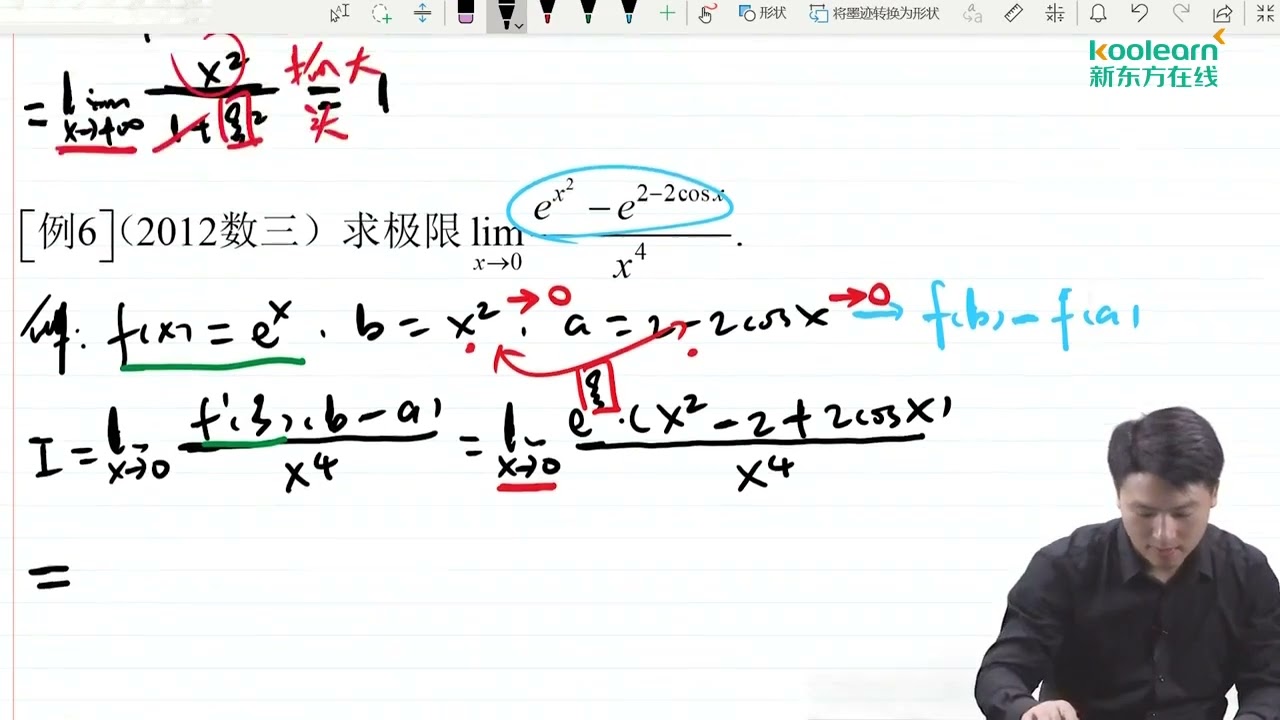 形状 将墨迹转换为形状
koolearn
新东方在线
= lim x→+∞ x² / 1+ξ² 抓大头 = 1
[例6](2012数三）求极限 lim x→0 e^{x²} − e^{2−2cosx} / x⁴ .
解: f(x) = e^x . b = x² → 0 . a = 2 − 2cosx → 0 → f(b) − f(a)
I = lim x→0 f'(ξ)(b − a) / x⁴ = lim x→0 e^ξ · (x² − 2 + 2cosx) / x⁴
=